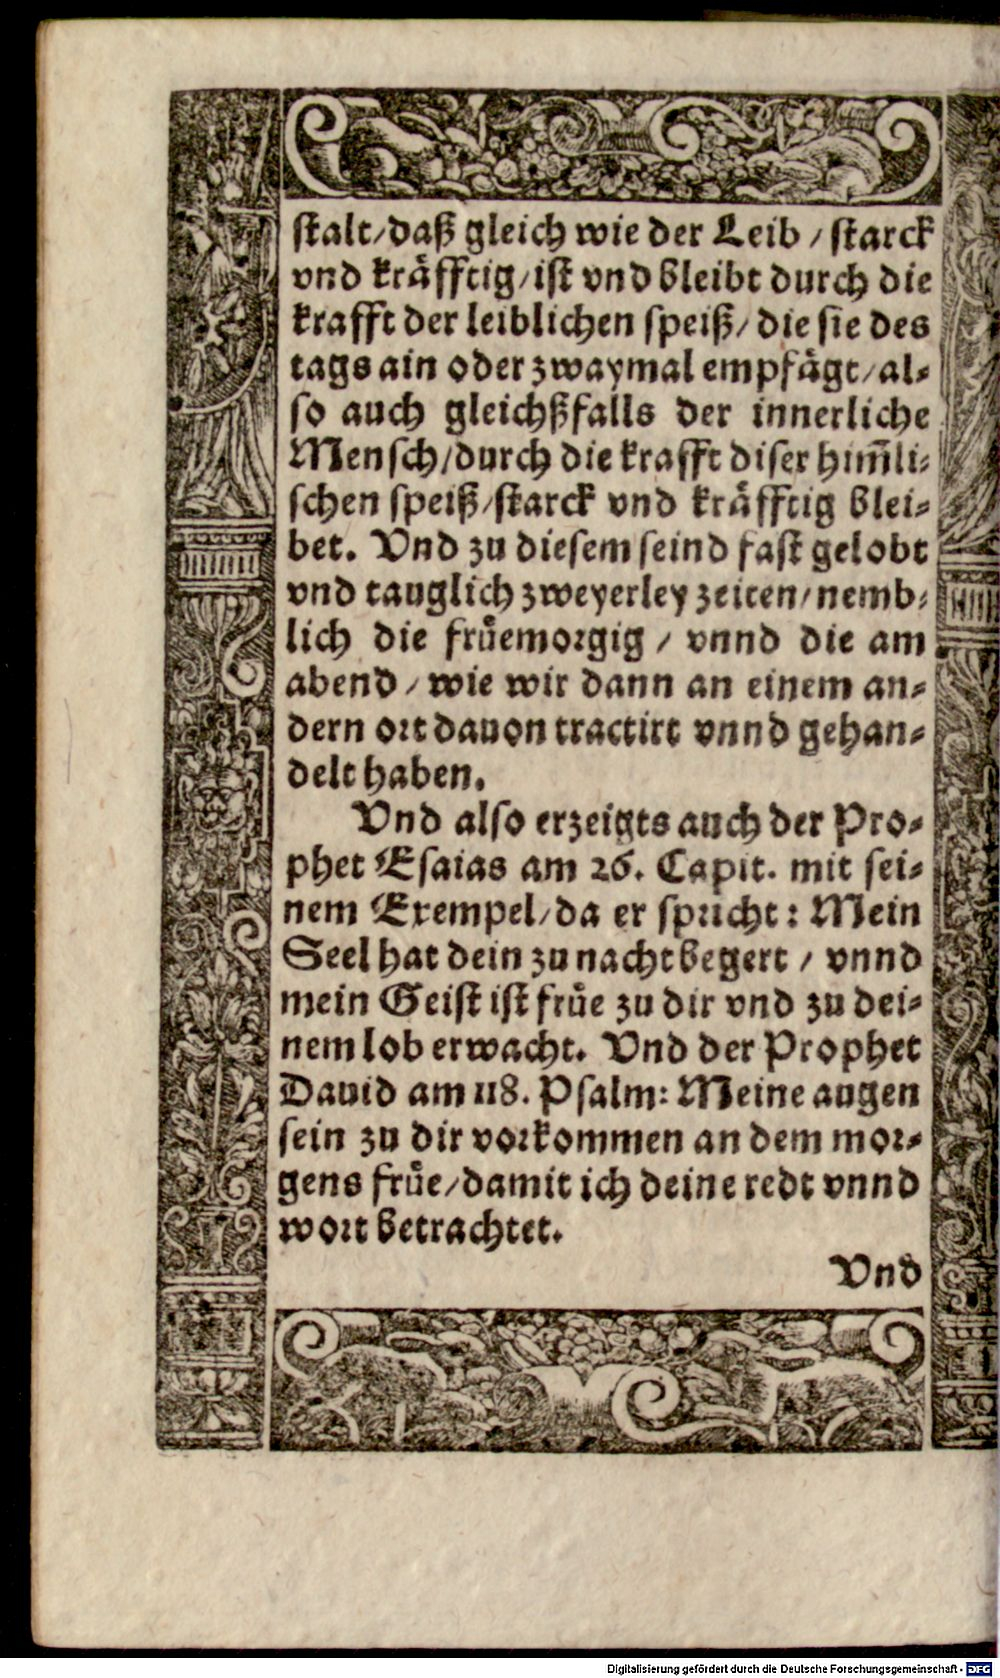 stalt/daß gleich wie der Leib / starck
vnd kräfftig/ist vnd bleibt durch die
krafft der leiblichen speiß/ die sie des
tags ain oder zwaymal empfägt/al-
so auch gleichßfalls der innerliche
Mensch/durch die krafft diser him̃li-
schen speiß/starck vnd kräfftig blei-
bet. Vnd zu diesem seind fast gelobt
vnd tauglich zweyerley zeiten/nemb-
lich die frůemorgig / vnnd die am
abend / wie wir dann an einem an-
dern ort dauon tractirt vnnd gehan-
delt haben.
Vnd also erzeigts auch der Pro-
phet Esaias am 26. Capit. mit sei-
nem Exempel/da er spricht: Mein
Seel hat dein zu nacht begert / vnnd
mein Geist ist frůe zu dir vnd zu dei-
nem lob erwacht. Vnd der Prophet
Dauid am 118. Psalm: Meine augen
sein zu dir vorkommen an dem mor-
gens frůe/damit ich deine redt vnnd
wort betrachtet.
Vnd
Digitalisierung gefördert durch die Deutsche Forschungsgemeinschaft - DFG